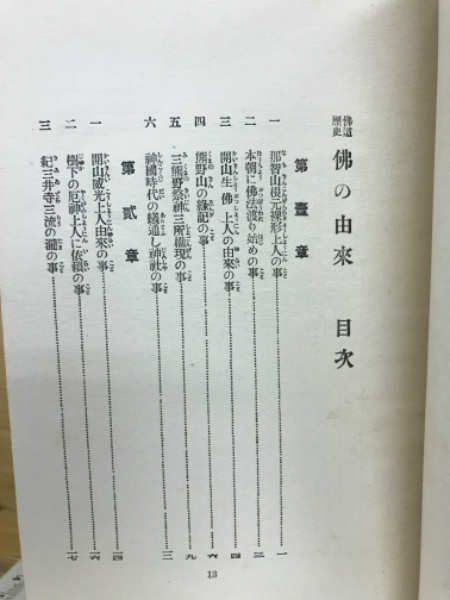 佛道歷史 佛の由來 目次
第壹章
一 那智山根元裸形上人の事 一
二 本朝に佛法渡り始めの事 三
三 開山生佛上人の由來の事 四
四 熊野山の緣記の事 六
五 三熊野祭神三所權現の事 九
六 神國時代の蟻通し神社の事 一三
第貳章
一 開山威光上人由來の事 一四
二 樹下の厄神上人に依賴の事 一六
三 紀三井寺三流の瀧の事 一七
13